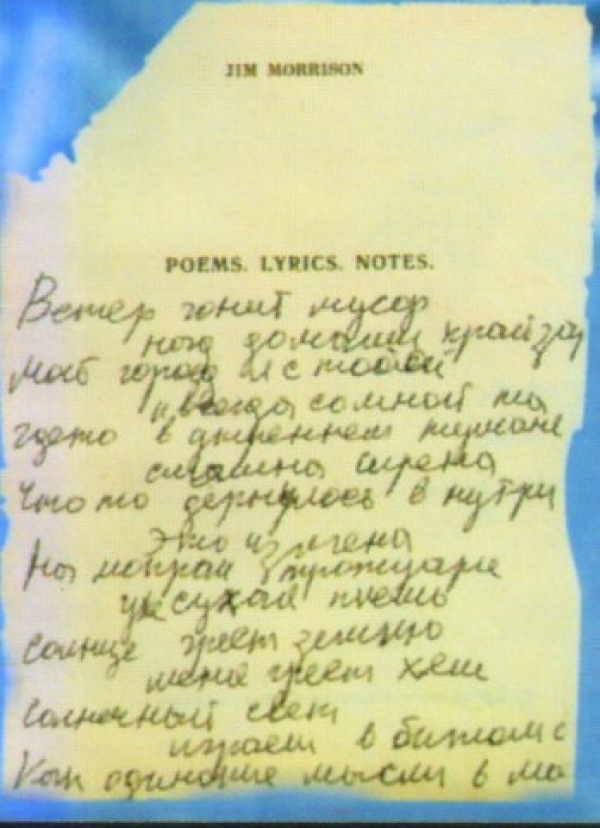 JIM MORRISON
POEMS. LYRICS. NOTES.
Ветер гонит мусор
над домами
мой город и с тобой
и всегда со мной ты
где то в утреннем тумане
слышна сирена
что то дернулось в нутри
Это измена
На мокрый тротуар
сухая
солнце греет землю
меня греет хеш
солнечный свет
играет в
Как одинокие мысли в мо